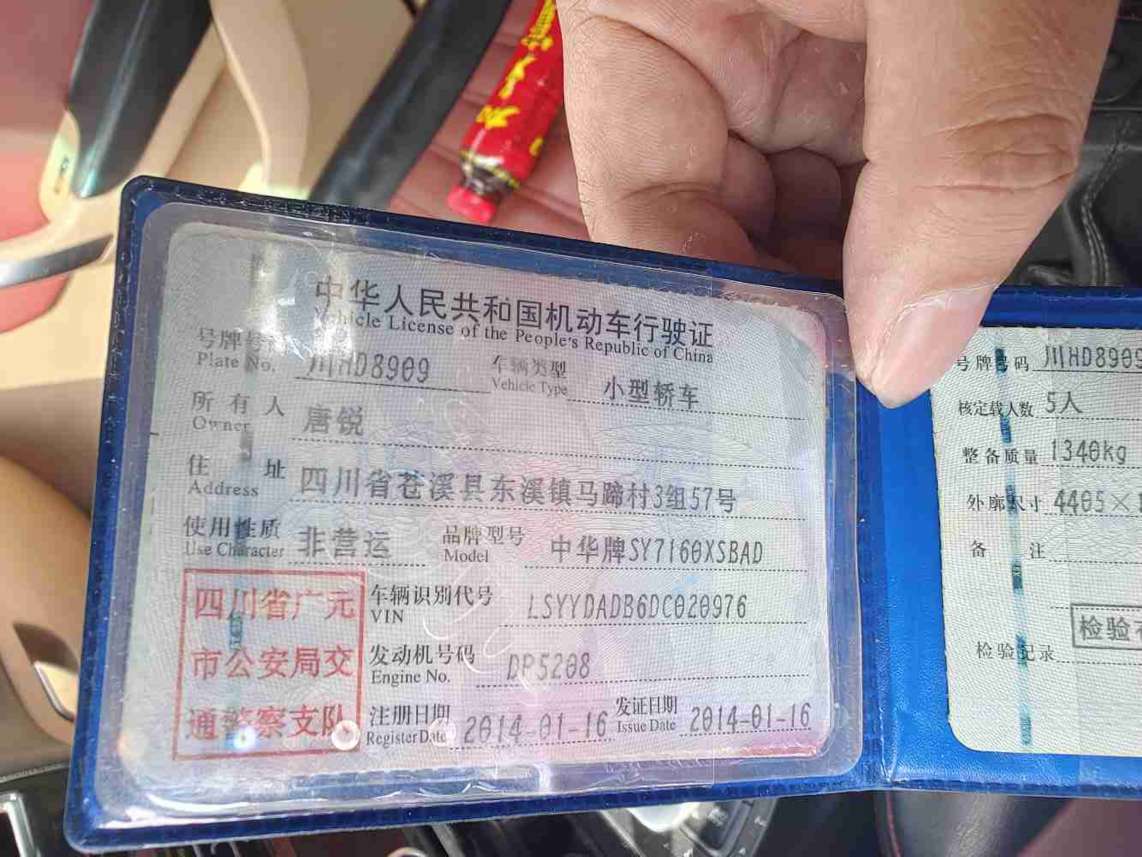 中华人民共和国机动车行驶证
Vehicle License of the People's Republic of China
号牌号码 川HD8909 车辆类型 小型轿车
Plate No. Vehicle Type
所有人 唐锐
Owner
住址 四川省苍溪县东溪镇马蹄村3组57号
Address
使用性质 非营运 品牌型号 中华牌SY7160XSBAD
Use Character Model
四川省广元
市公安局交
通警察支队
车辆识别代号 LSYYDADB6DC020976
VIN
发动机号码 DP5208
Engine No.
注册日期 2014-01-16 发证日期 2014-01-16
Register Date Issue Date
号牌号码 川HD8909
核定载人数 5人
整备质量 1340kg
外廓尺寸 4405×
备注
检验
检验记录